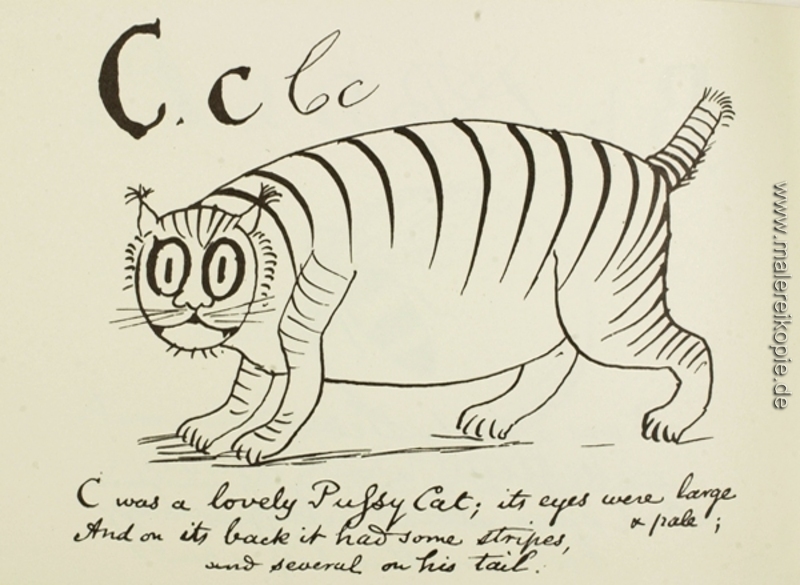 C. c C c
C was a lovely Pufsy Cat; its eyes were large
& pale;
And on its back it had some stripes,
and several on his tail.
www.malereikopie.de